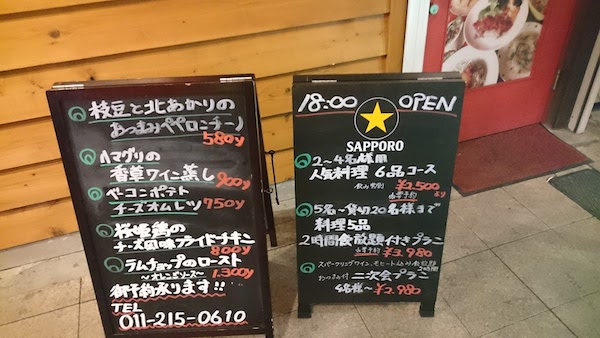 枝豆と北あかりの
おつまみペペロンチーノ
580y
ハマグリの
香草ワイン蒸し 900y
ベーコンポテト
チーズオムレツ 750y
桜姫鶏の
チーズ風味フライドチキン
800y
ラムチョップのロースト
〜オレンジソース〜 1.300y
御予約承ります!!
TEL
011-215-0610
18:00 OPEN
SAPPORO
2〜4名様用
人気料理 6品コース
¥2,500
より
5名〜貸切20名様まで
料理5品
2時間飲放題付きプラン
¥3,980
スパークリングワイン、モヒート込み飲放題
2時間
おつまみ付 二次会プラン
4名様〜 ¥2,980